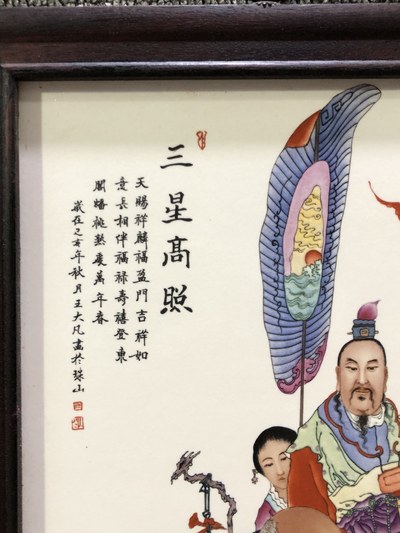 三星高照
天賜祥麟福盈門吉祥如
意長相伴福祿壽禧登東
閣蟠桃熟慶萬年春
歲在乙亥年秋月王大凡畫於珠山